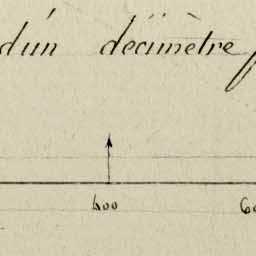 d'un décimètre
400